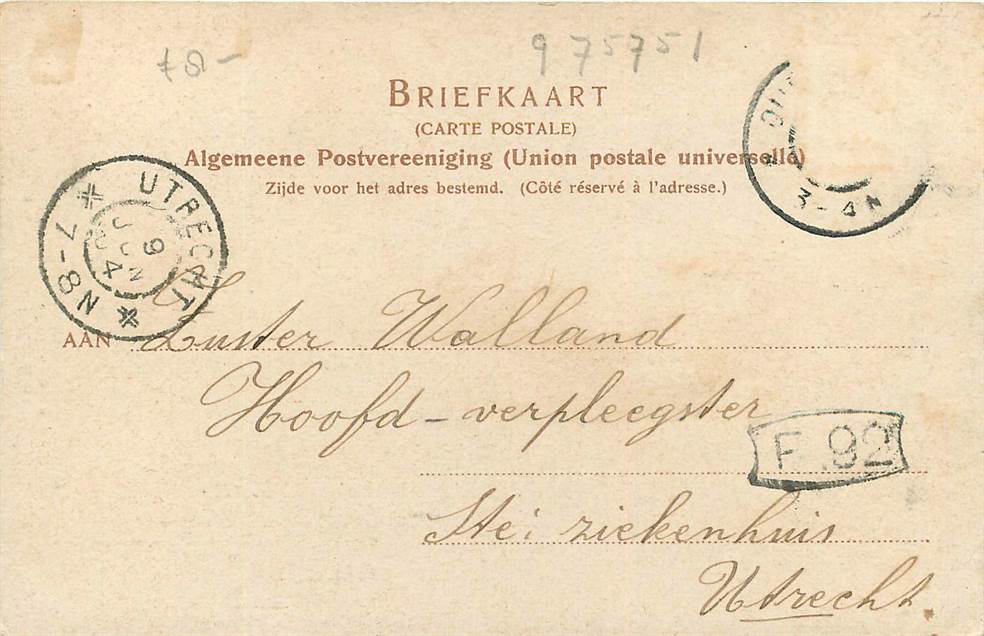 78,-
975751
BRIEFKAART
(CARTE POSTALE)
Algemeene Postvereeniging (Union postale universelle)
Zijde voor het adres bestemd. (Côté réservé à l'adresse.)
3-4N
UTRECHT
9
JUN
4
7-8N
AAN Zuster Walland
Hoofd-verpleegster
F.92
Ste: ziekenhuis
Utrecht.